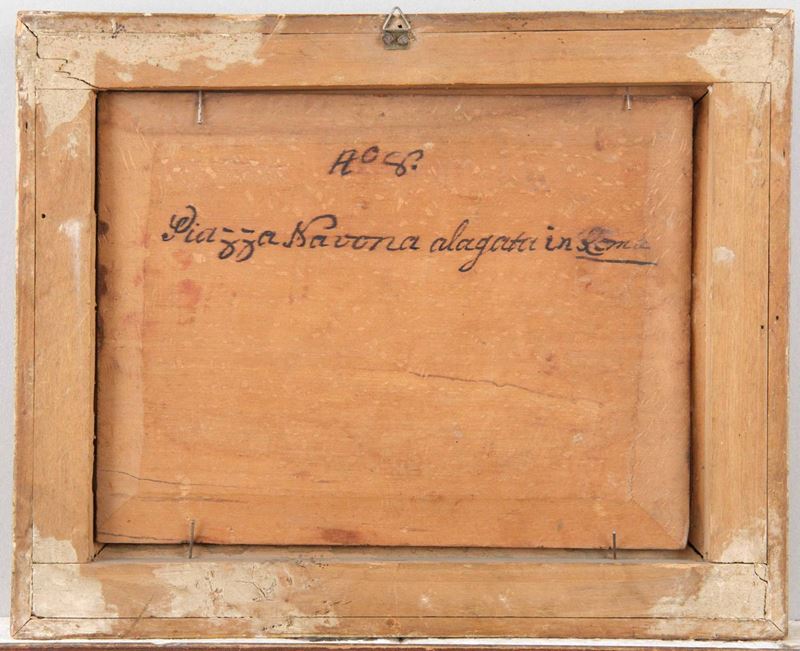 Aº 8.
Piazza Navona alagata in Roma